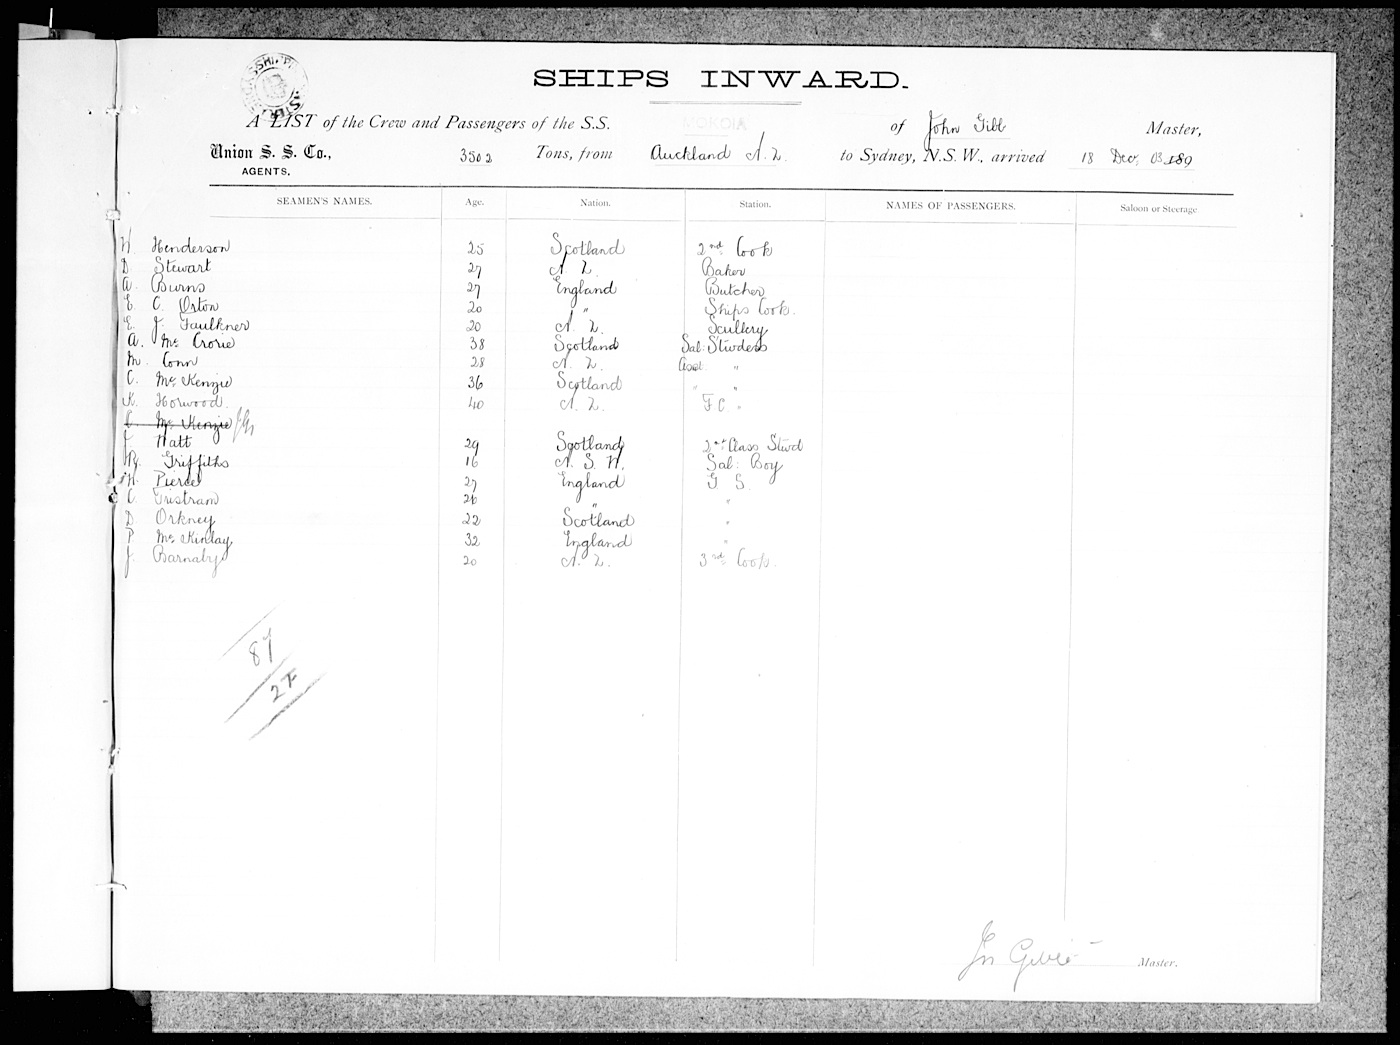 SHIPS INWARD.
A LIST of the Crew and Passengers of the S.S. MOKOIA of John Gibb Master,
Union S. S. Co., AGENTS. 3502 Tons, from Auckland N. Z. to Sydney, N.S.W., arrived 18 Dec, 03 189
SEAMEN'S NAMES. Age. Nation. Station. NAMES OF PASSENGERS. Saloon or Steerage
W Henderson 25 Scotland 2nd Cook
D Stewart 27 N. Z. Baker
A. Burns 27 England Butcher
E. C. Orton 20 " Ships Cook.
E. J. Faulkner 20 N. Z. Scullery
A. Mc Crorie 38 Scotland Sal: Stwdess
M. Conn 28 N. Z. Asst "
C. Mc Kenzie 36 Scotland " "
K. Horwood 40 N. Z. F.C. "
C. Mc Kenzie
J Watt 29 Scotland 2nd Class Stwd
Hy. Griffiths 16 N. S. W. Sal: Boy
W. Pierce 27 England G S.
C. Tristram 26 " "
D. Orkney 22 Scotland "
P. Mc Kinlay 32 England "
J Barnaby 20 N. Z. 3rd Cook.
87
27
Master.